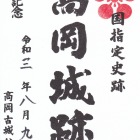 国指定史跡
高岡城跡
記念
令和三年八月九
高岡古城